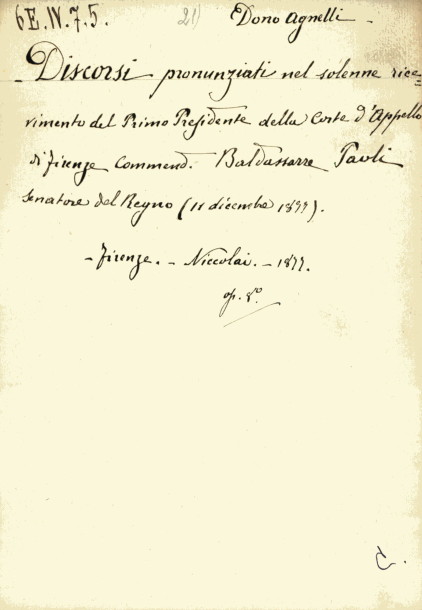 6E.IV.7.5. 21) Dono Agnelli -
- Discorsi pronunziati nel solenne rice=
vimento del Primo Presidente della Corte d'Appello
di Firenze Commend. Baldassarre Paoli
Senatore del Regno (11 dicembre 1877).
- Firenze. - Niccolai. - 1877.
op. 8.º